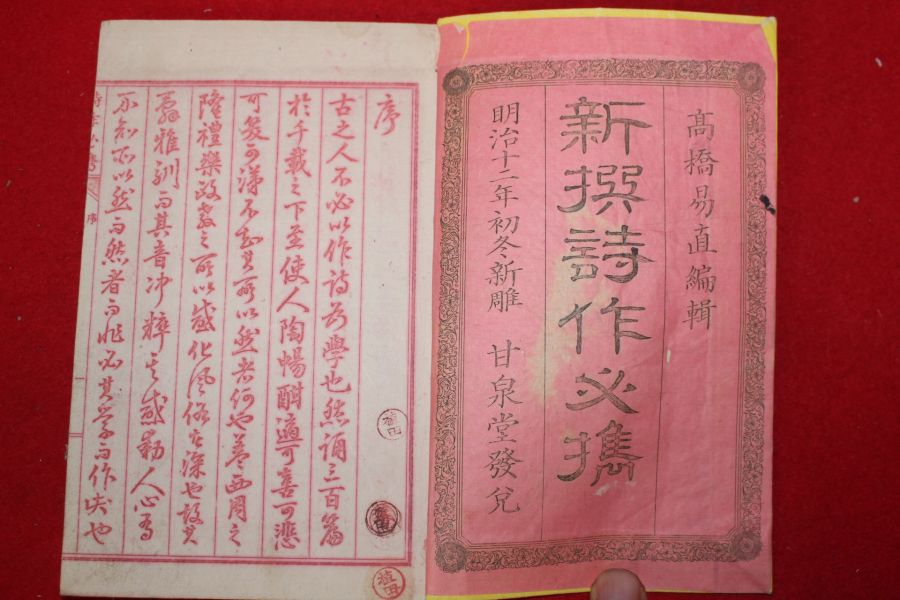 高橋易直編輯
新撰詩作必携
明治十二年初冬新雕　甘泉堂發兌
序
古之人不必以作詩為學也然誦三百篇
於千載之下至使人陶暢酣適可喜可悲
可箴可漾不知其所以然者何也蓋西周之
隆禮樂政教之所以感化風俗者深也故其
辭雅馴而其音冲粹其感動人心有
不知所以然而然者而非必其學而作夫也
序
植田
植田